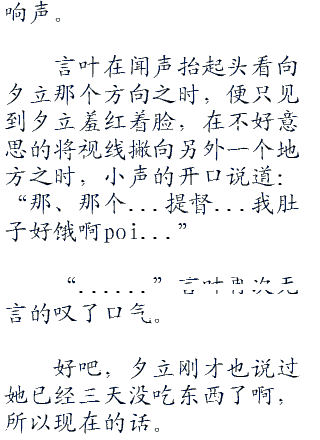 响声。
言叶在闻声抬起头看向
夕立那个方向之时，便只见
到夕立羞红着脸，在不好意
思的将视线撇向另外一个地
方之时，小声的开口说道：
“那、那个...提督...我肚
子好饿啊poi...”
“......”言叶再次无
言的叹了口气。
好吧，夕立刚才也说过
她已经三天没吃东西了啊，
所以现在的话。